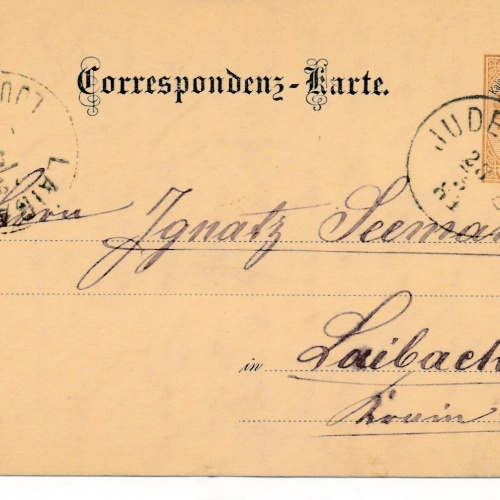 Correspondenz-Karte.
JUDE
LAIB
Herrn Ignatz Seeman
in Laibach
Krain